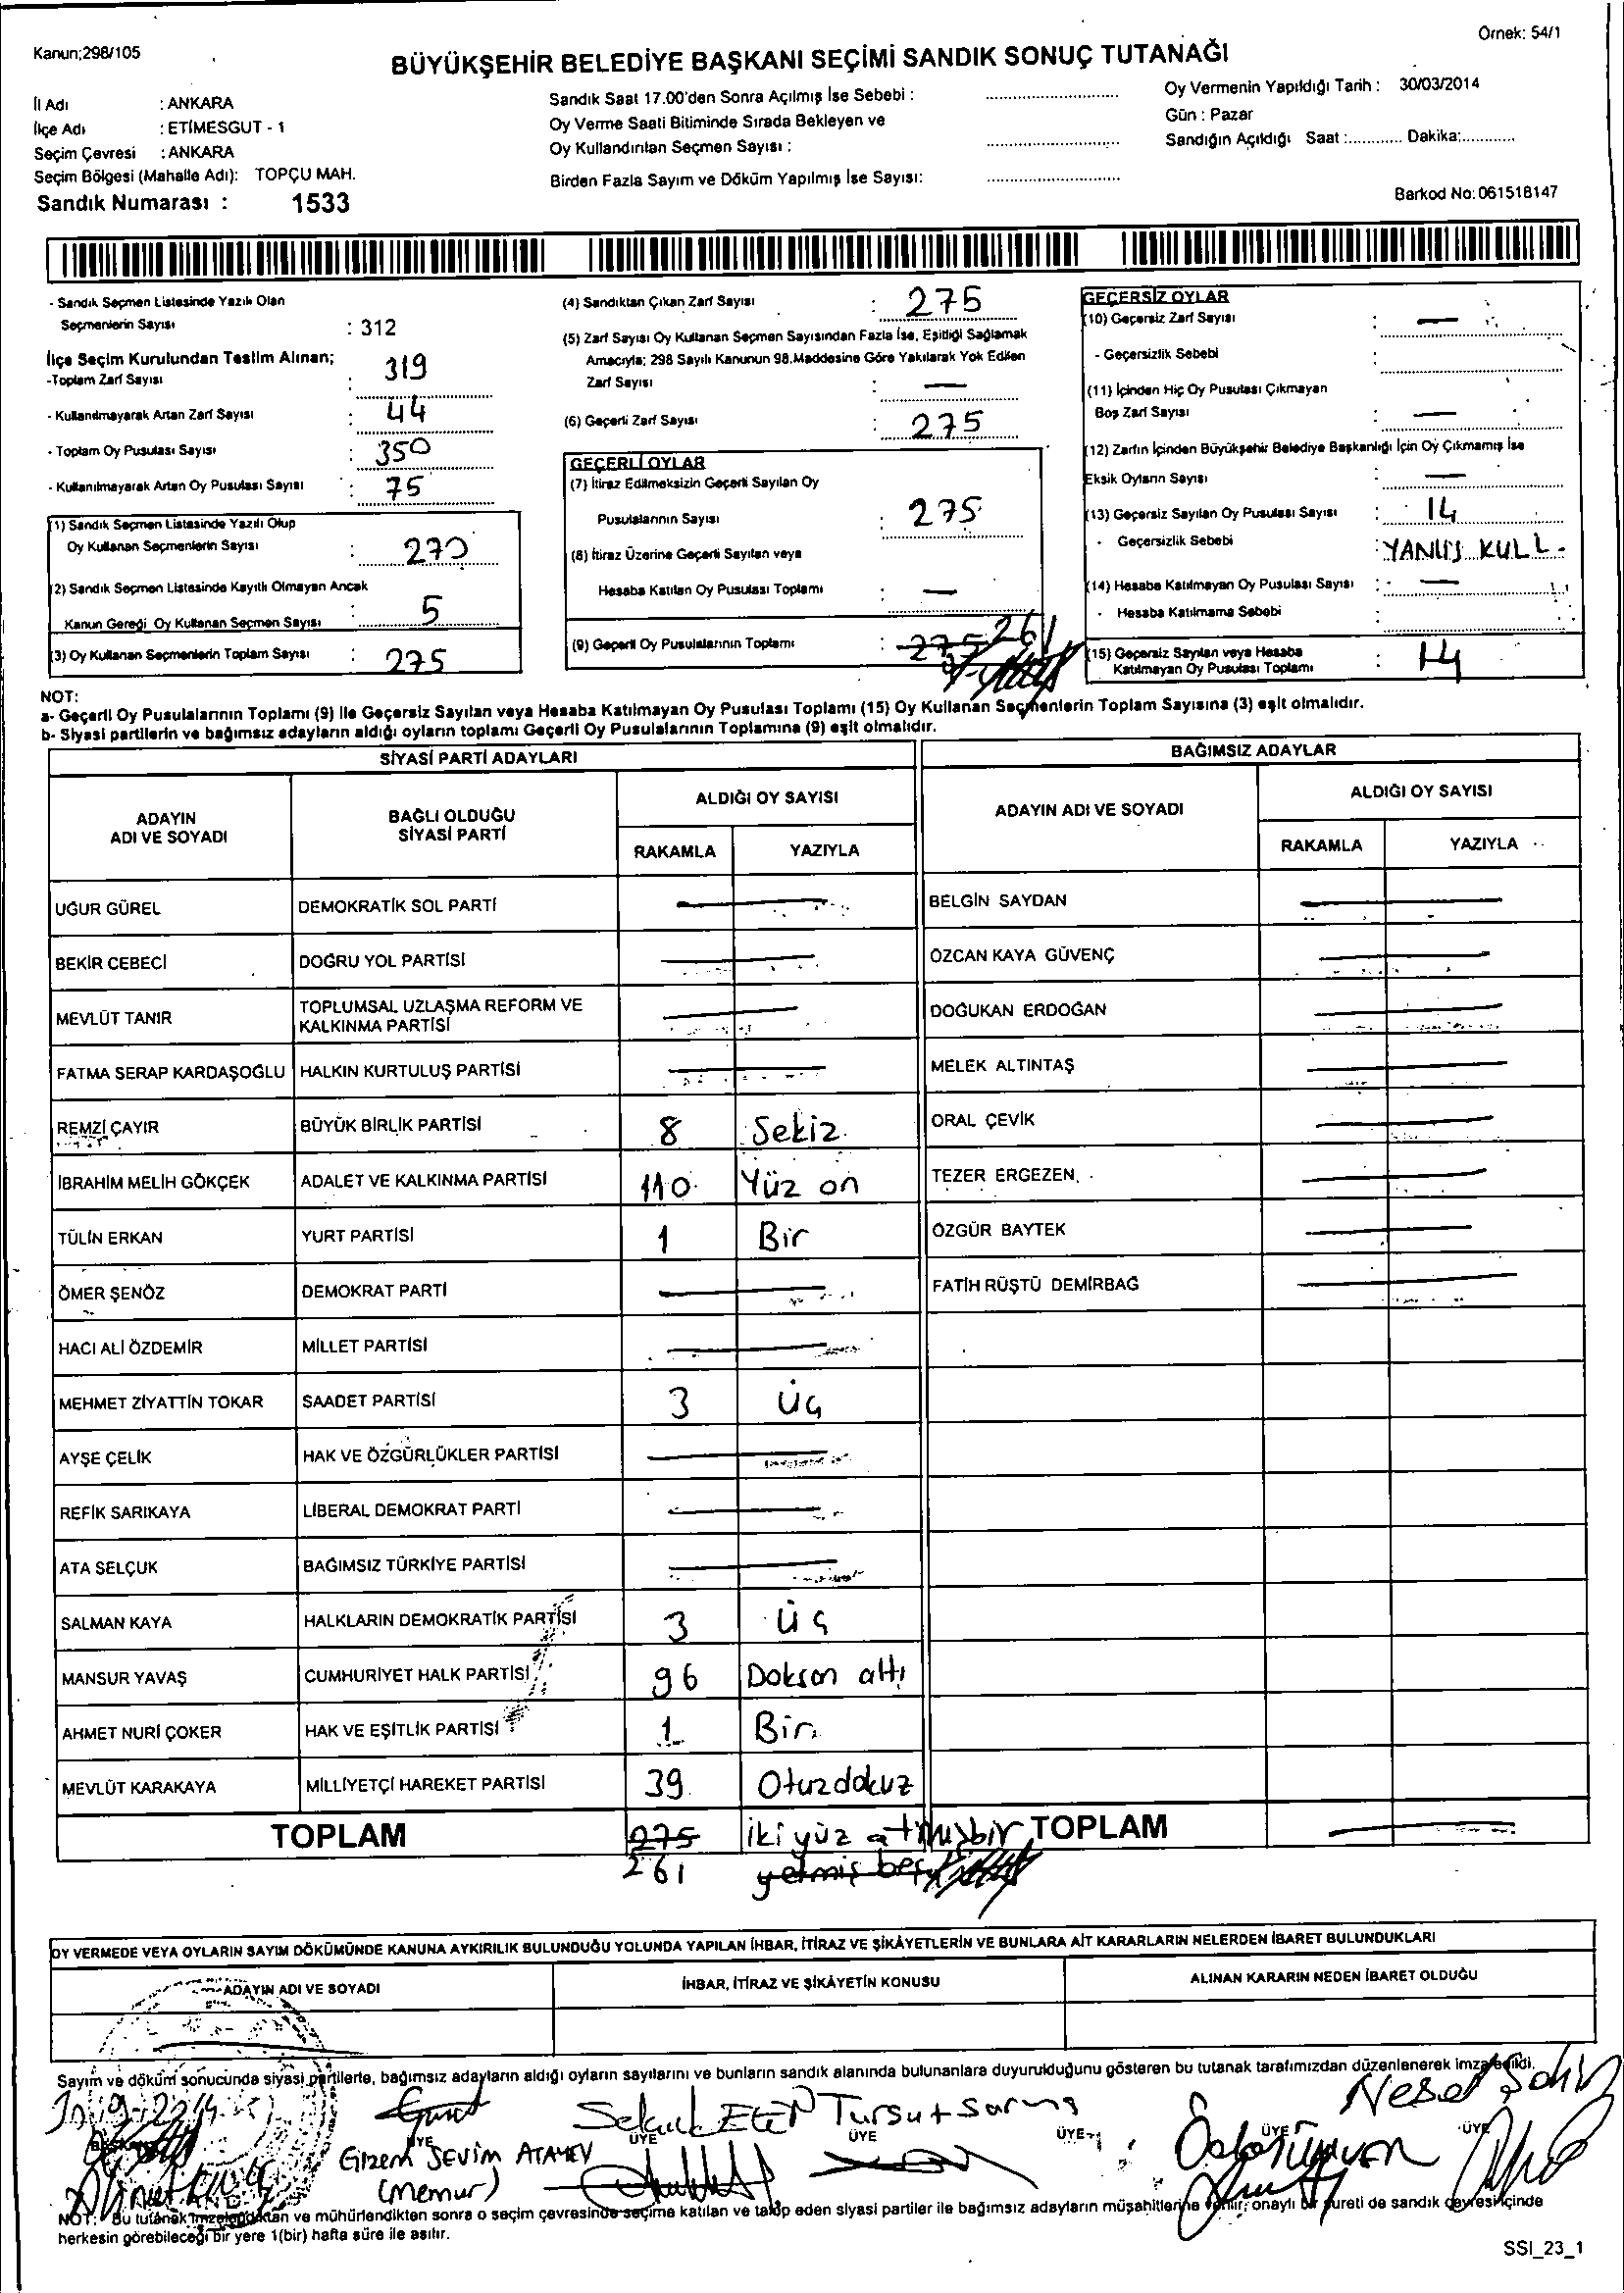 Kanun;298/105
Örnek: 54/1
BÜYÜKŞEHİR BELEDİYE BAŞKANI SEÇİMİ SANDIK SONUÇ TUTANAĞI
İl Adı : ANKARA
İlçe Adı : ETİMESGUT - 1
Seçim Çevresi : ANKARA
Seçim Bölgesi (Mahalle Adı): TOPÇU MAH.
Sandık Numarası : 1533
Sandık Saat 17.00'den Sonra Açılmış İse Sebebi :
Oy Verme Saati Bitiminde Sırada Bekleyen ve
Oy Kullandırılan Seçmen Sayısı :
Birden Fazla Sayım ve Döküm Yapılmış İse Sayısı:
Oy Vermenin Yapıldığı Tarih : 30/03/2014
Gün : Pazar
Sandığın Açıldığı Saat :............ Dakika:............
Barkod No: 061518147
- Sandık Seçmen Listesinde Yazılı Olan
Seçmenlerin Sayısı : 312
İlçe Seçim Kurulundan Teslim Alınan;
-Toplam Zarf Sayısı : 319
- Kullanılmayarak Artan Zarf Sayısı : 44
- Toplam Oy Pusulası Sayısı : 350
- Kullanılmayarak Artan Oy Pusulası Sayısı : 75
(1) Sandık Seçmen Listesinde Yazılı Olup
Oy Kullanan Seçmenlerin Sayısı : 270
(2) Sandık Seçmen Listesinde Kayıtlı Olmayan Ancak
Kanun Gereği Oy Kullanan Seçmen Sayısı : 5
(3) Oy Kullanan Seçmenlerin Toplam Sayısı : 275
(4) Sandıktan Çıkan Zarf Sayısı : 275
(5) Zarf Sayısı Oy Kullanan Seçmen Sayısından Fazla İse, Eşitliği Sağlamak
Amacıyla; 298 Sayılı Kanunun 98.Maddesine Göre Yakılarak Yok Edilen
Zarf Sayısı : —
(6) Geçerli Zarf Sayısı : 275
GEÇERLİ OYLAR
(7) İtiraz Edilmeksizin Geçerli Sayılan Oy
Pusulalarının Sayısı : 275
(8) İtiraz Üzerine Geçerli Sayılan veya
Hesaba Katılan Oy Pusulası Toplamı : —
(9) Geçerli Oy Pusulalarının Toplamı : 275 261
GEÇERSİZ OYLAR
(10) Geçersiz Zarf Sayısı : —
- Geçersizlik Sebebi :
(11) İçinden Hiç Oy Pusulası Çıkmayan
Boş Zarf Sayısı : —
(12) Zarfın İçinden Büyükşehir Belediye Başkanlığı İçin Oy Çıkmamış İse
Eksik Oyların Sayısı : —
(13) Geçersiz Sayılan Oy Pusulası Sayısı : 14
- Geçersizlik Sebebi : YANLIŞ KULL.
(14) Hesaba Katılmayan Oy Pusulası Sayısı : —
- Hesaba Katılmama Sebebi :
(15) Geçersiz Sayılan veya Hesaba
Katılmayan Oy Pusulası Toplamı : 14
NOT:
a- Geçerli Oy Pusulalarının Toplamı (9) ile Geçersiz Sayılan veya Hesaba Katılmayan Oy Pusulası Toplamı (15) Oy Kullanan Seçmenlerin Toplam Sayısına (3) eşit olmalıdır.
b- Siyasi partilerin ve bağımsız adayların aldığı oyların toplamı Geçerli Oy Pusulalarının Toplamına (9) eşit olmalıdır.
SİYASİ PARTİ ADAYLARI
ADAYIN ADI VE SOYADI
BAĞLI OLDUĞU SİYASİ PARTİ
ALDIĞI OY SAYISI
RAKAMLA YAZIYLA
UĞUR GÜREL DEMOKRATİK SOL PARTİ —
BEKİR CEBECİ DOĞRU YOL PARTİSİ —
MEVLÜT TANIR TOPLUMSAL UZLAŞMA REFORM VE
KALKINMA PARTİSİ —
FATMA SERAP KARDAŞOĞLU HALKIN KURTULUŞ PARTİSİ —
REMZİ ÇAYIR BÜYÜK BİRLİK PARTİSİ 8 Sekiz
İBRAHİM MELİH GÖKÇEK ADALET VE KALKINMA PARTİSİ 110 Yüz on
TÜLİN ERKAN YURT PARTİSİ 1 Bir
ÖMER ŞENÖZ DEMOKRAT PARTİ —
HACI ALİ ÖZDEMİR MİLLET PARTİSİ —
MEHMET ZİYATTİN TOKAR SAADET PARTİSİ 3 Üç
AYŞE ÇELİK HAK VE ÖZGÜRLÜKLER PARTİSİ —
REFİK SARIKAYA LİBERAL DEMOKRAT PARTİ —
ATA SELÇUK BAĞIMSIZ TÜRKİYE PARTİSİ —
SALMAN KAYA HALKLARIN DEMOKRATİK PARTİSİ 3 Üç
MANSUR YAVAŞ CUMHURİYET HALK PARTİSİ 96 Doksan altı
AHMET NURİ ÇOKER HAK VE EŞİTLİK PARTİSİ 1 Bir
MEVLÜT KARAKAYA MİLLİYETÇİ HAREKET PARTİSİ 39 Otuzdokuz
TOPLAM 275 İki yüz atmışbir
261 yetmiş beş
BAĞIMSIZ ADAYLAR
ADAYIN ADI VE SOYADI
ALDIĞI OY SAYISI
RAKAMLA YAZIYLA
BELGİN SAYDAN —
ÖZCAN KAYA GÜVENÇ —
DOĞUKAN ERDOĞAN —
MELEK ALTINTAŞ —
ORAL ÇEVİK —
TEZER ERGEZEN —
ÖZGÜR BAYTEK —
FATİH RÜŞTÜ DEMİRBAĞ —
TOPLAM —
OY VERMEDE VEYA OYLARIN SAYIM DÖKÜMÜNDE KANUNA AYKIRILIK BULUNDUĞU YOLUNDA YAPILAN İHBAR, İTİRAZ VE ŞİKÂYETLERİN VE BUNLARA AİT KARARLARIN NELERDEN İBARET BULUNDUKLARI
ADAYIN ADI VE SOYADI
İHBAR, İTİRAZ VE ŞİKÂYETİN KONUSU
ALINAN KARARIN NEDEN İBARET OLDUĞU
Sayım ve döküm sonucunda siyasi partilerle, bağımsız adayların aldığı oyların sayılarını ve bunların sandık alanında bulunanlara duyurulduğunu gösteren bu tutanak tarafımızdan düzenlenerek imza edildi.
BAŞKAN ÜYE ÜYE ÜYE ÜYE ÜYE ÜYE
Gizem SEVİM ATAMEV
(memur)
NOT: Bu tutanak imzalandıktan ve mühürlendikten sonra o seçim çevresinde seçime katılan ve talep eden siyasi partiler ile bağımsız adayların müşahitlerine verilir; onaylı bir sureti de sandık çevresi içinde
herkesin görebileceği bir yere 1(bir) hafta süre ile asılır.
SSI_23_1